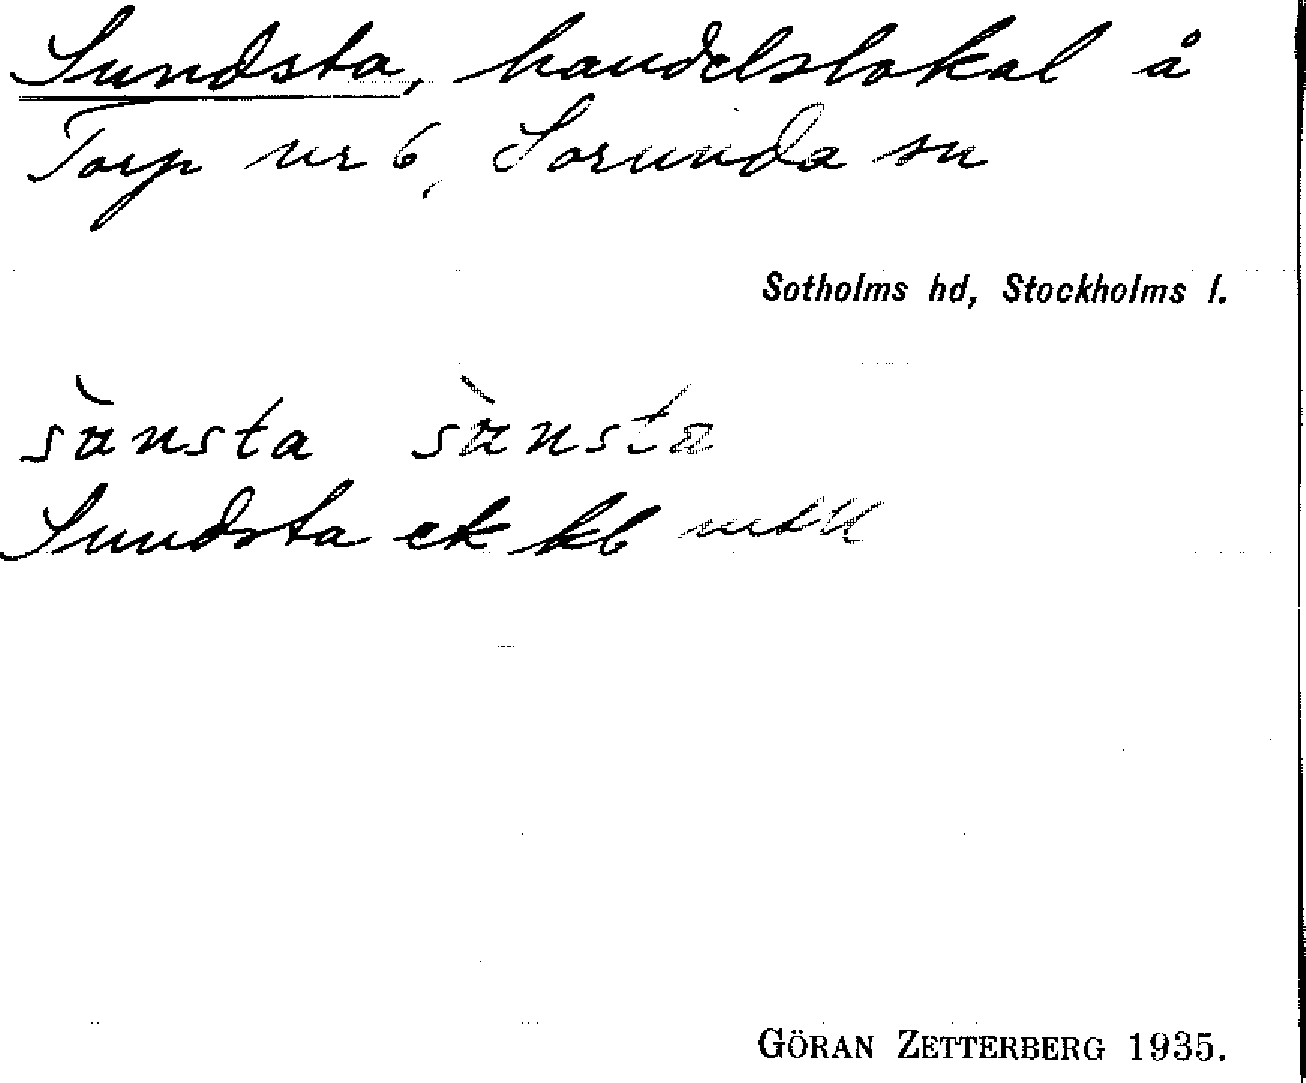 Sundsta, handelslokal å
Torp nr 6, Sorunda sn
Sotholms hd, Stockholms l.
Sundsta ek kb
GÖRAN ZETTERBERG 1935.